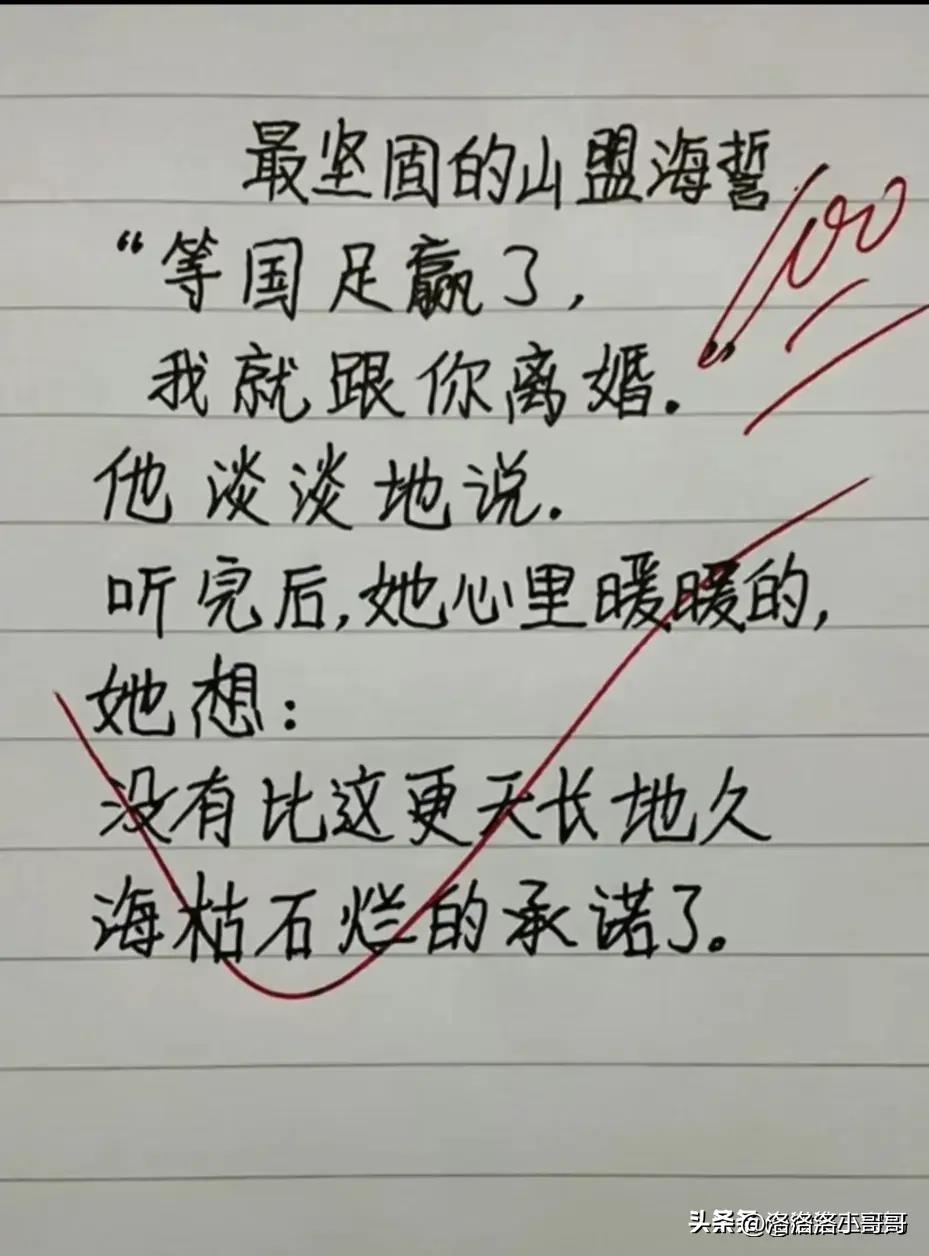 最坚固的山盟海誓
100
“等国足赢了,
我就跟你离婚.”
他淡淡地说.
听完后,她心里暖暖的,
她想:
没有比这更天长地久
海枯石烂的承诺了。
头条 @洛洛洛小哥哥